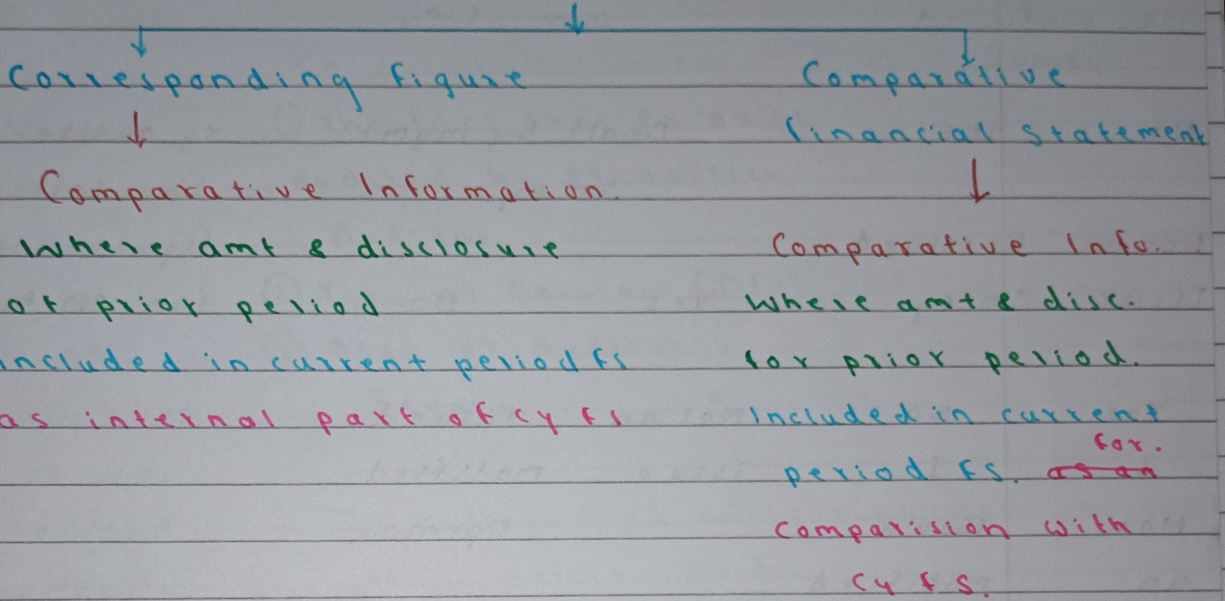 Corresponding figure
Comparative Information.
Where amt & disclosure
of prior period
included in current period fs
as internal part of cy fs
Comparative
financial statement
Comparative Info.
Where amt & disc.
for prior period.
Included in current
for.
period fs. as an
comparision with
cy fs.